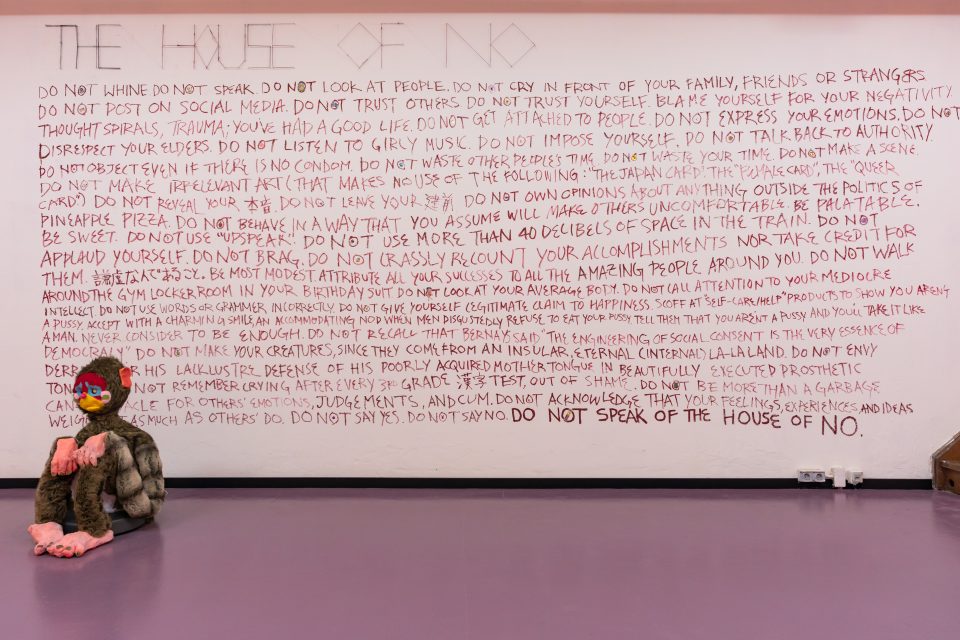 THE HOUSE OF NO
DO NOT WHINE. DO NOT SPEAK. DO NOT LOOK AT PEOPLE. DO NOT CRY IN FRONT OF YOUR FAMILY, FRIENDS OR STRANGERS.
DO NOT POST ON SOCIAL MEDIA. DO NOT TRUST OTHERS. DO NOT TRUST YOURSELF. BLAME YOURSELF FOR YOUR NEGATIVITY,
THOUGHT SPIRALS, TRAUMA; YOU'VE HAD A GOOD LIFE. DO NOT GET ATTACHED TO PEOPLE. DO NOT EXPRESS YOUR EMOTIONS. DO NOT
DISRESPECT YOUR ELDERS. DO NOT LISTEN TO GIRLY MUSIC. DO NOT IMPOSE YOURSELF. DO NOT TALK BACK TO AUTHORITY.
DO NOT OBJECT EVEN IF THERE IS NO CONDOM. DO NOT WASTE OTHER PEOPLE'S TIME. DO NOT WASTE YOUR TIME. DO NOT MAKE A SCENE.
DO NOT MAKE IRRELEVANT ART (THAT MAKES NO USE OF THE FOLLOWING: "THE JAPAN CARD", THE CARD", THE "QUEER
CARD") DO NOT REVEAL YOUR 本音. DO NOT LEAVE YOUR 建前 DO NOT OWN OPINIONS ABOUT ANYTHING OUTSIDE THE POLITICS OF
PINEAPPLE PIZZA. DO NOT BEHAVE IN A WAY THAT YOU ASSUME WILL MAKE OTHERS UNCOMFORTABLE. BE PALATABLE.
BE SWEET. DO NOT USE "UPSPEAK". DO NOT USE MORE THAN 40 DECIBELS OF SPACE IN THE TRAIN. DO NOT
APPLAUD YOURSELF. DO NOT BRAG. DO NOT CRASSLY RECOUNT YOUR ACCOMPLISHMENTS NOR TAKE CREDIT FOR
THEM. BE MOST MODEST. ATTRIBUTE ALL YOUR SUCCESSES TO ALL THE AMAZING PEOPLE AROUND YOU. DO NOT WALK
AROUND THE GYM LOCKER ROOM IN YOUR BIRTHDAY SUIT. DO NOT LOOK AT YOUR AVERAGE BODY. DO NOT CALL ATTENTION TO YOUR MEDIOCRE
INTELLECT. DO NOT USE WORDS OR GRAMMER INCORRECTLY. DO NOT GIVE YOURSELF LEGITIMATE CLAIM TO HAPPINESS. SCOFF AT "SELF-CARE/HELP" PRODUCTS TO SHOW YOU AREN'T
A PUSSY. ACCEPT WITH A CHARMING SMILE, AN ACCOMMODATING NOD WHEN MEN DISGUSTEDLY REFUSE TO EAT YOUR PUSSY. TELL THEM THAT YOU AREN'T A PUSSY AND YOU'LL TAKE IT LIKE
A MAN. NEVER CONSIDER TO BE ENOUGH. DO NOT RECALL THAT BERNAYS SAID "THE ENGINEERING OF SOCIAL CONSENT IS THE VERY ESSENCE OF
DEMOCRACY" DO NOT MAKE YOUR CREATURES, SINCE THEY COME FROM AN INSULAR, ETERNAL (INTERNAL) LA-LA LAND. DO NOT ENVY
HIS LACKLUSTRE DEFENSE OF HIS POORLY ACQUIRED MOTHER TONGUE IN BEAUTIFULLY EXECUTED PROSTHETIC
NOT REMEMBER CRYING AFTER EVERY 3RD GRADE 漢字 TEST, OUT OF SHAME. DO NOT BE MORE THAN A GARBAGE
FOR OTHERS' EMOTIONS, JUDGEMENTS, AND CUM. DO NOT ACKNOWLEDGE THAT YOUR FEELINGS, EXPERIENCES AND IDEAS
AS MUCH AS OTHERS' DO. DO NOT SAY YES. DO NOT SAY NO. DO NOT SPEAK OF THE HOUSE OF NO.